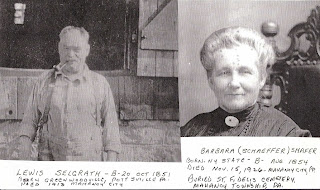 LEWIS SELGRATH - B- 20 OCT 1851
BORN GREENWOODVILLE, POTTSVILLE PA.
DIED 1913 MAHANOY CITY
BARBARA (SCHAEFFER) SHAFER
BORN. NY STATE - B- AUG 1854
DIED NOV. 15, 1926 - MAHANOY CITY, PA
BURIED ST. FIDELIS CEMETERY,
MAHANOY TOWNSHIP, PA.